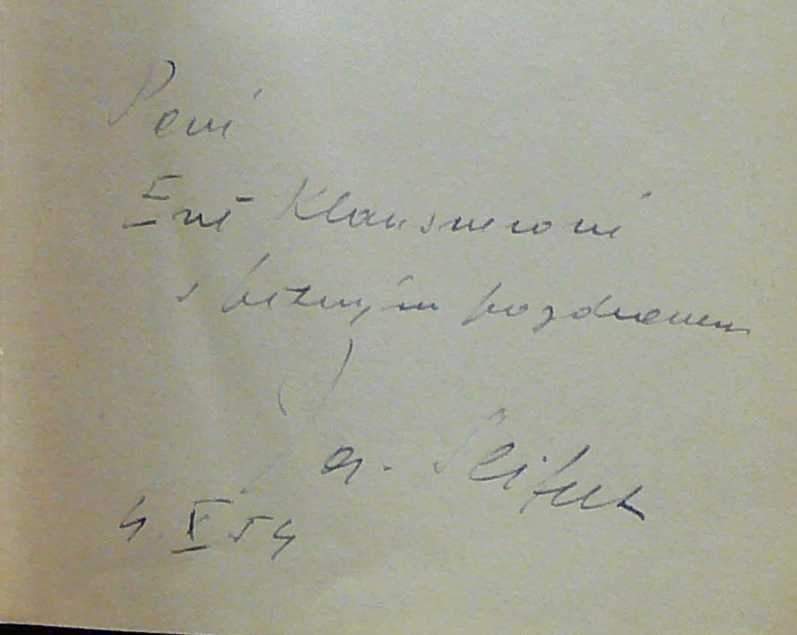 Paní
Evě Klausnerové
s běžným pozdravem
Jar. Seifert
4. X 54